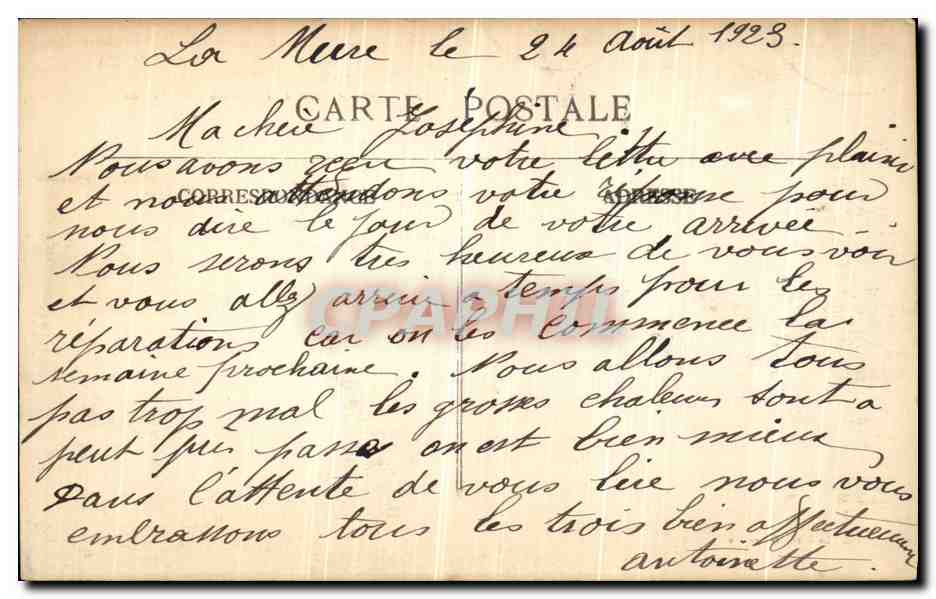 La Mure le 24 Août 1923.
CARTE POSTALE
Ma chère Joséphine.
Nous avons reçu votre lettre avec plaisir
CORRESPONDANCE ADRESSE
et nous attendons votre réponse pour
nous dire le jour de votre arrivée.
Nous serons très heureux de vous voir
et vous allez arriver a temps pour les
CPAPHIL
réparations car on les commence la
semaine prochaine. Nous allons tous
pas trop mal les grosses chaleurs sont a
peut près passa on est bien mieux
Dans l'attente de vous lire nous vous
embrassons tous les trois bien affectueusement
antoinette.